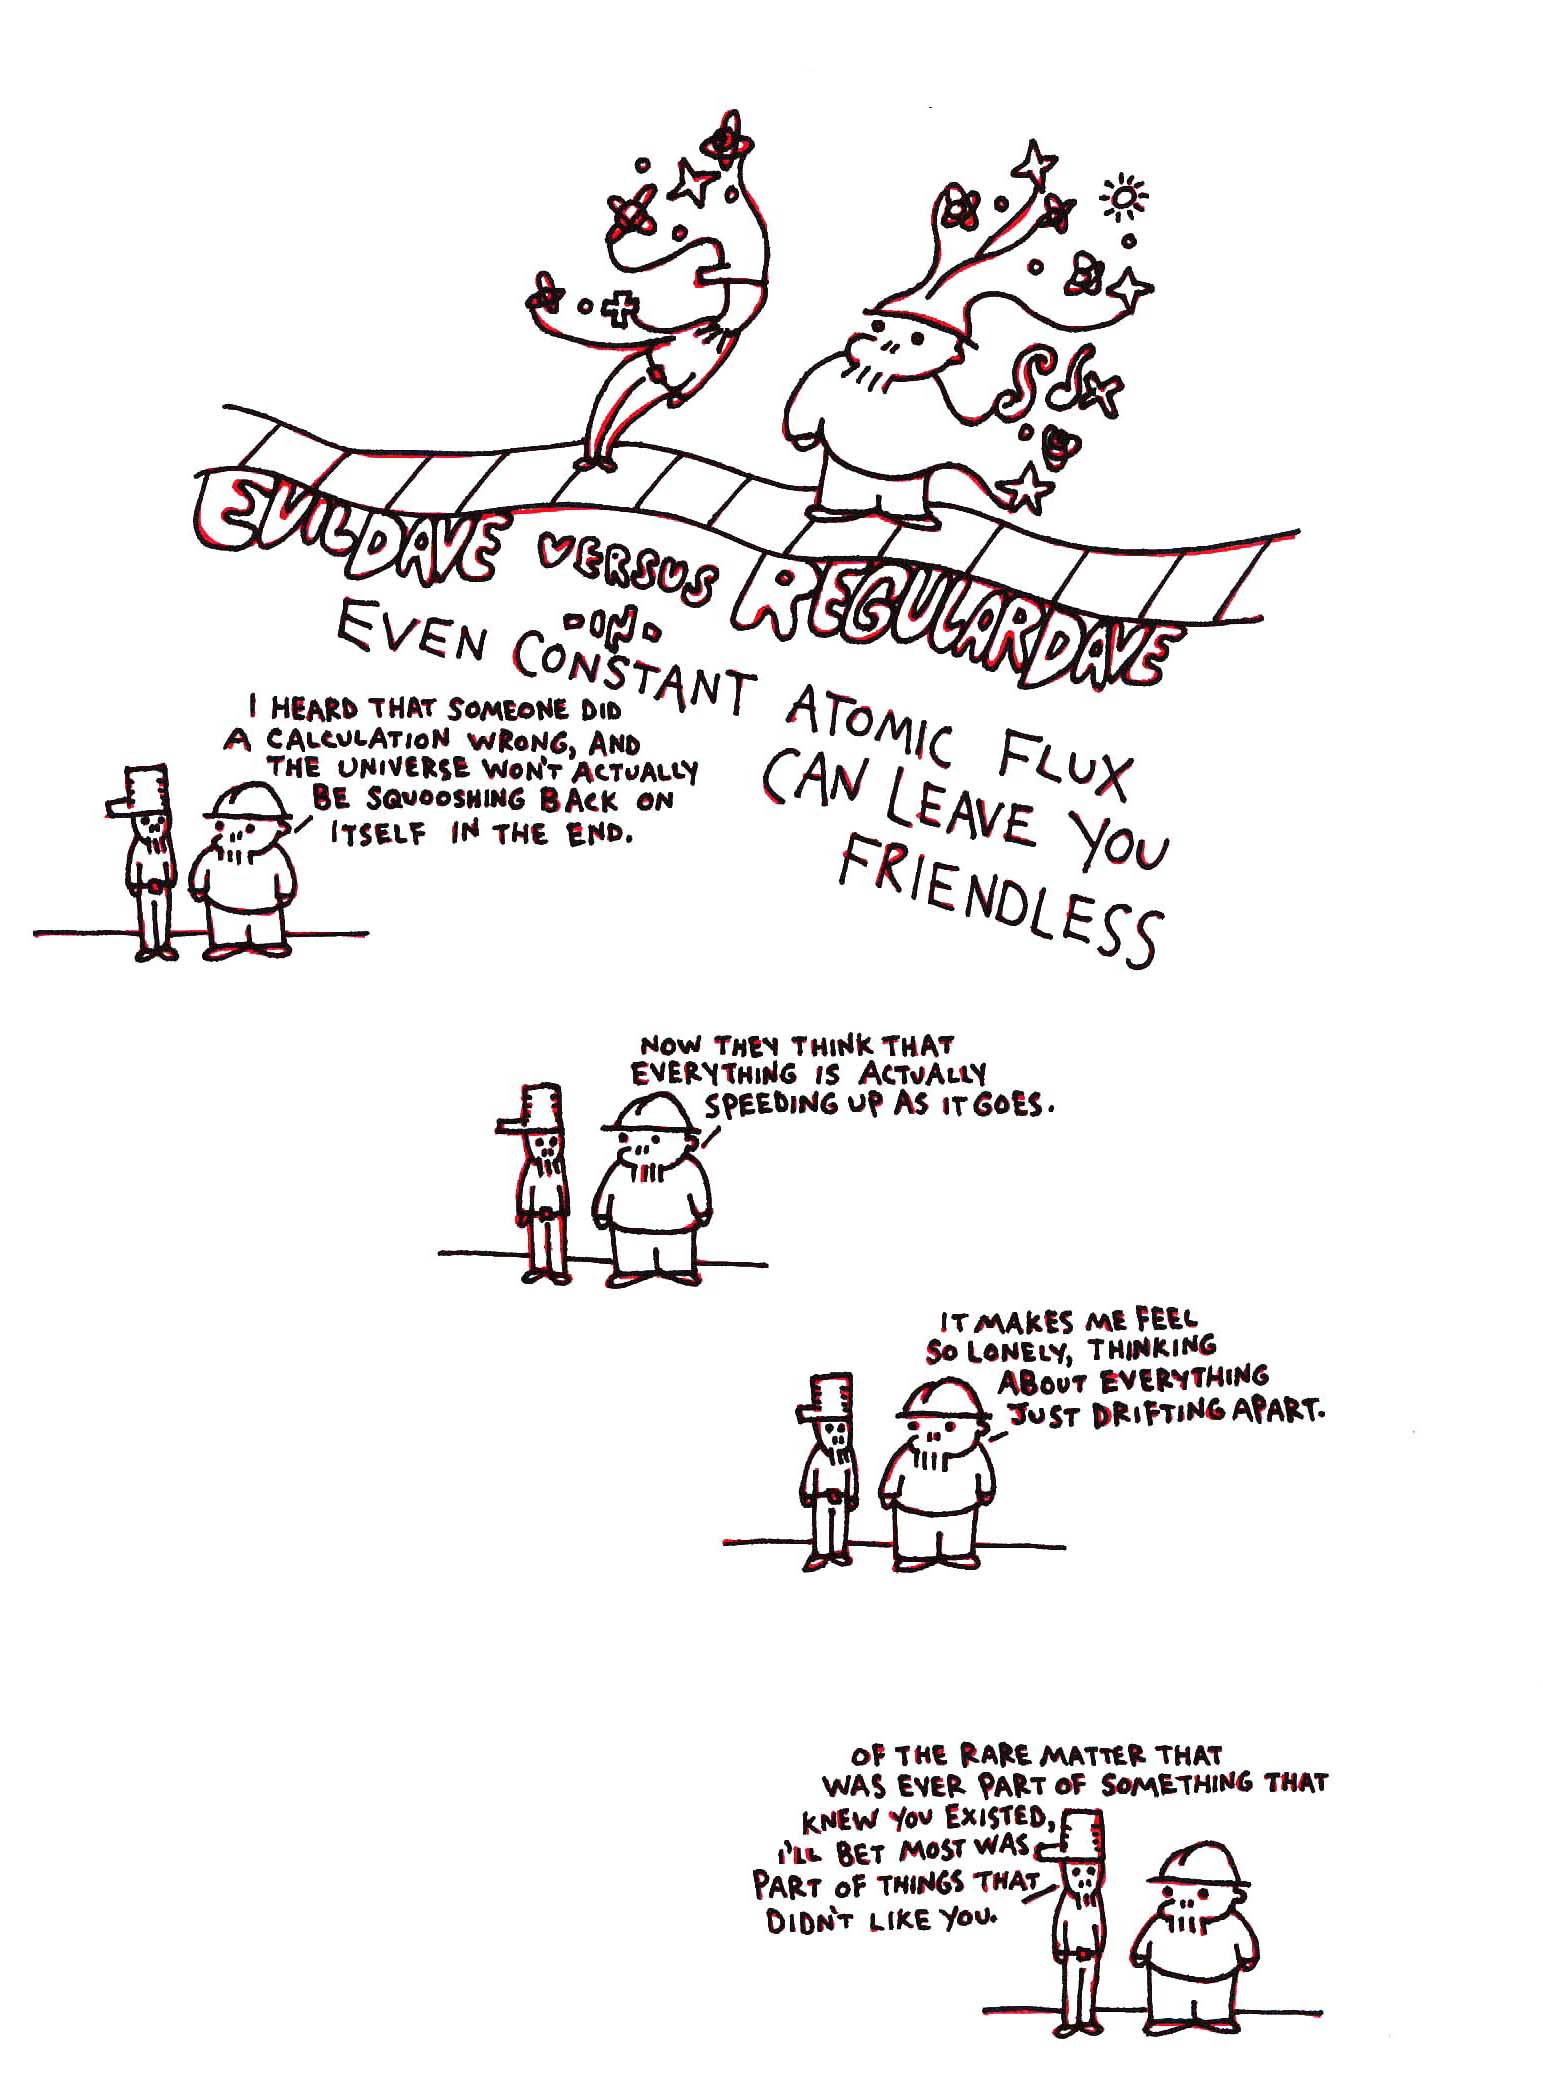 EVILDAVE VERSUS REGULARDAVE
-IN-
EVEN CONSTANT ATOMIC FLUX
CAN LEAVE YOU
FRIENDLESS
I HEARD THAT SOMEONE DID
A CALCULATION WRONG, AND
THE UNIVERSE WON'T ACTUALLY
BE SQUOOSHING BACK ON
ITSELF IN THE END.
NOW THEY THINK THAT
EVERYTHING IS ACTUALLY
SPEEDING UP AS IT GOES.
IT MAKES ME FEEL
SO LONELY, THINKING
ABOUT EVERYTHING
JUST DRIFTING APART.
OF THE RARE MATTER THAT
WAS EVER PART OF SOMETHING THAT
KNEW YOU EXISTED,
I'LL BET MOST WAS
PART OF THINGS THAT
DIDN'T LIKE YOU.